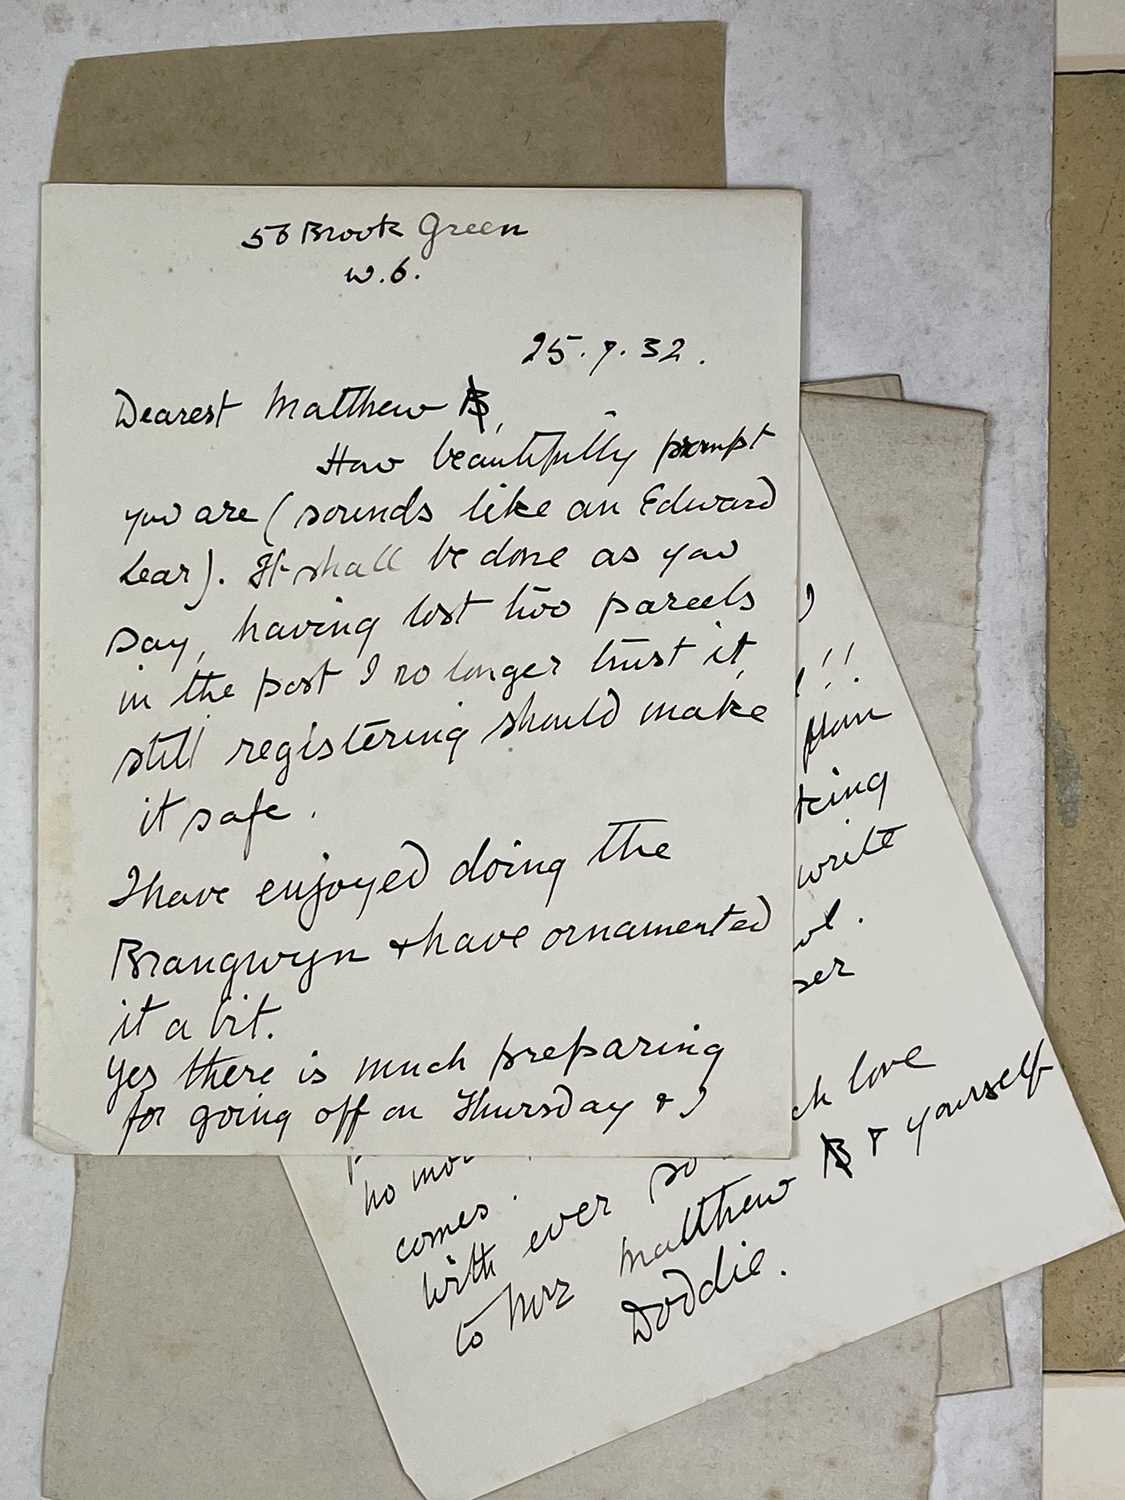 56 Brook Green
W.6.
25.7.32.
Dearest Matthew B,
How beautifully prompt
you are (sounds like an Edward
Lear). It shall be done as you
say, having lost two parcels
in the post I no longer trust it,
still registering should make
it safe.
I have enjoyed doing the
Brangwyn & have ornamented
it a bit.
Yes there is much preparing
for going off on Thursday & I
!!
write
love
no mo
comes.
with ever so
to Mrs Matthew B & yourself
Doddie.